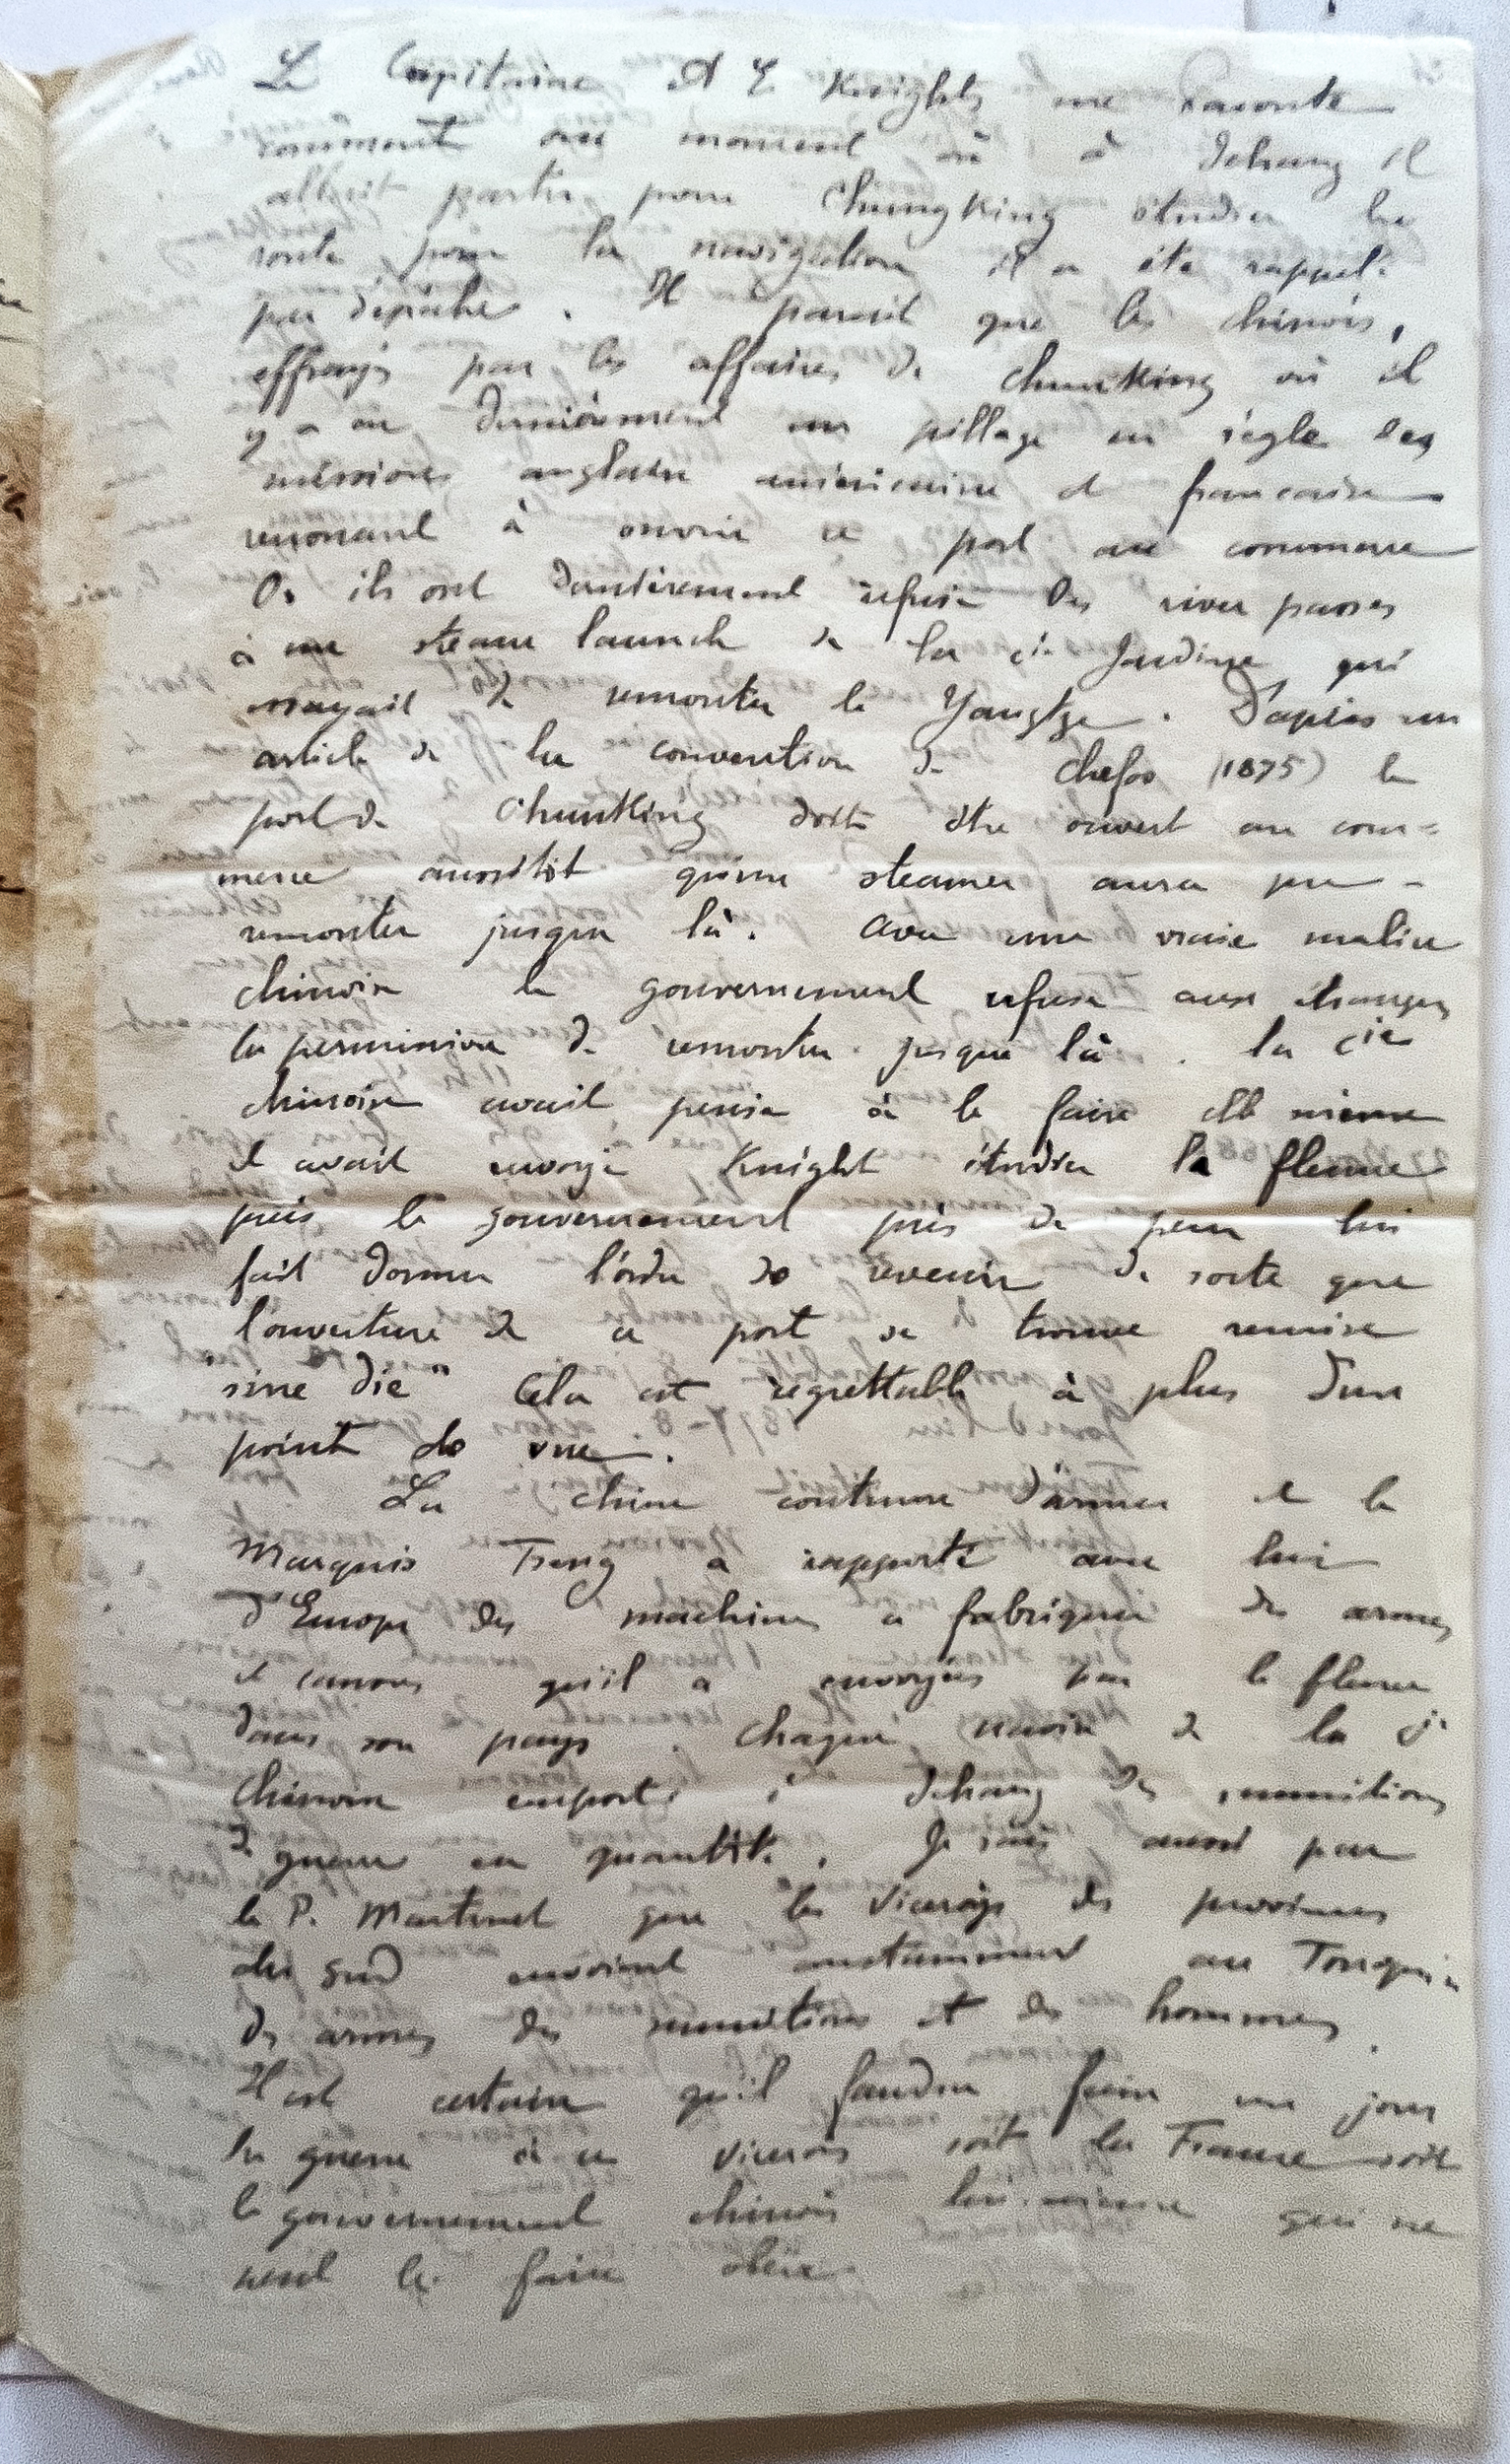 Le Capitaine A E Knights me raconte
comment au moment où à Ichang il
allait partir pour Chungking étudier la
route pour la navigation il a été rappelé
par dépêche. Il parait que les chinois,
effrayés par les affaires de Chunking où il
y a eu dernièrement un pillage en règle des
missions anglaise américaine et francaise
renoncent à ouvrir ce port au commerce
Or ils ont dernièrement refusé des river passes
à une steam launch de la Cie Jardine qui
essayait de remonter le Yangtze. D'après un
article de la convention de Chefoo (1875) le
port de Chunking doit être ouvert au com=
merce aussitôt qu'un steamer aura pu
remonter jusque là. Avec une vraie malice
chinoise le gouvernement refuse aux étrangers
la permission de remonter jusque là. la Cie
chinoise avait pensé à le faire elle même
et avait envoyé Knight étudier la fleuve
puis le gouvernement pris de peur lui
fait donner l'ordre de revenir de sorte que
l'ouverture de ce port se trouve remise
"sine die" Cela est regrettable à plus d'un
point de vue.
La Chine continue d'armer et le
Marquis Tseng a rapporté avec lui
d'Europe des machines a fabriquer des armes
et canons qu'il a envoyées par le fleuve
dans son pays. Chaque navire de la Cie
Chinoise emporte à Ichang des munitions
de guerre en quantité. Je sais aussi par
le P. Martinet que les Vicerois des provinces
du sud envoient constamment au Tonquin
des armes des munitions et des hommes.
Il est certain qu'il faudra faire un jour
la guerre à ce vicerois soit la France soit
le gouvernement chinois lui-même qui ne
veut le faire obéir